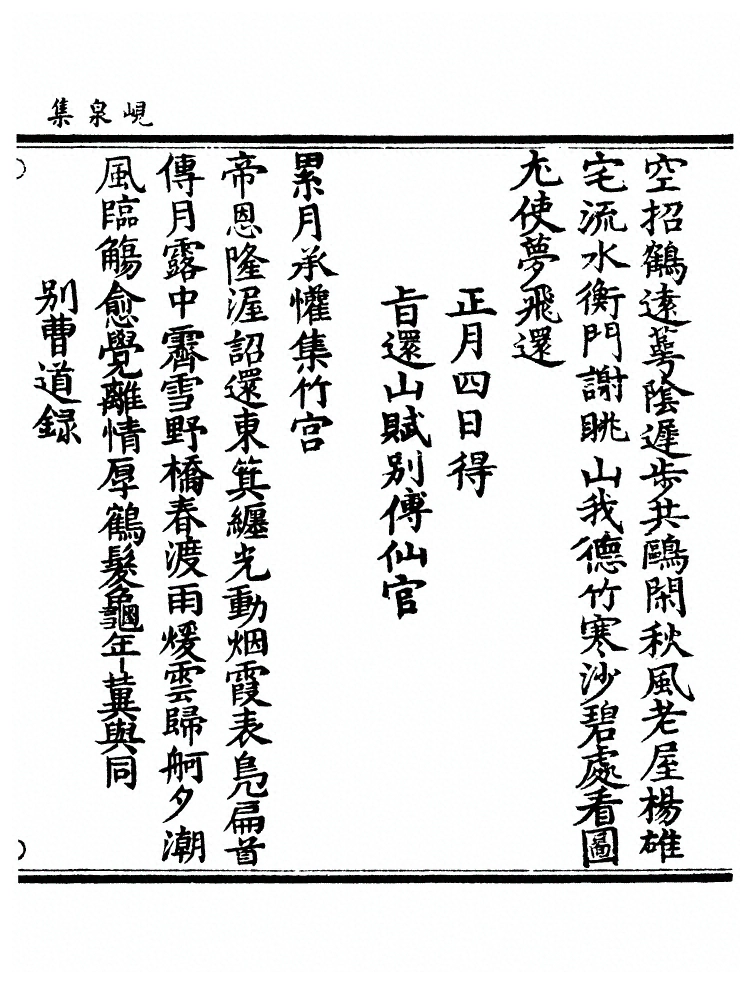 峴泉集
空招鶴遠蕚陰遲步共鷗閑秋風老屋楊雄
宅流水衡門謝眺山我德竹寒沙碧處看圖
尤使夢飛還
正月四日得
旨還山賦別傅仙官
累月承懽集竹宫
帝恩隆渥詔還東箕纒光動烟霞表鳬扁首
傳月露中霽雪野橋春渡雨煖雲歸舸夕潮
風臨觴愈覺離情厚鶴髮龜年冀與同
別曹道録